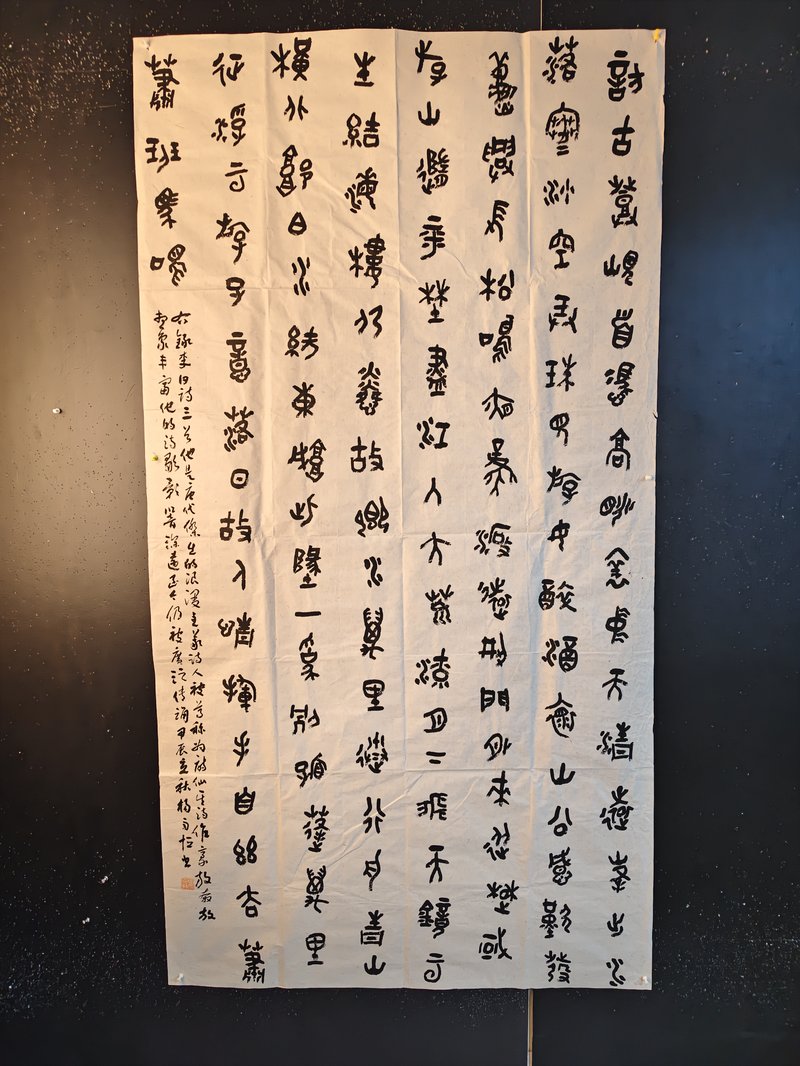 訪古登峴首憑高眺襄中天清遠峯出水
落寒沙空弄珠見游女醉酒懷山公感歎發
秋興長松鳴夜風渡遠荊門外來從楚國
游山隨平野盡江入大荒流月下飛天鏡雲
生結海樓仍憐故鄉水萬里送行舟青山
橫北郭白水繞東城此地一為別孤蓬萬里
征浮雲游子意落日故人情揮手自茲去蕭
蕭班馬鳴
右錄李白詩三首他是唐代傑出的浪漫主義詩人被尊称为詩仙其詩作豪放奔放
想象丰富他的诗歌影响深遠至今仍被廣泛传誦甲辰立秋楊恒书